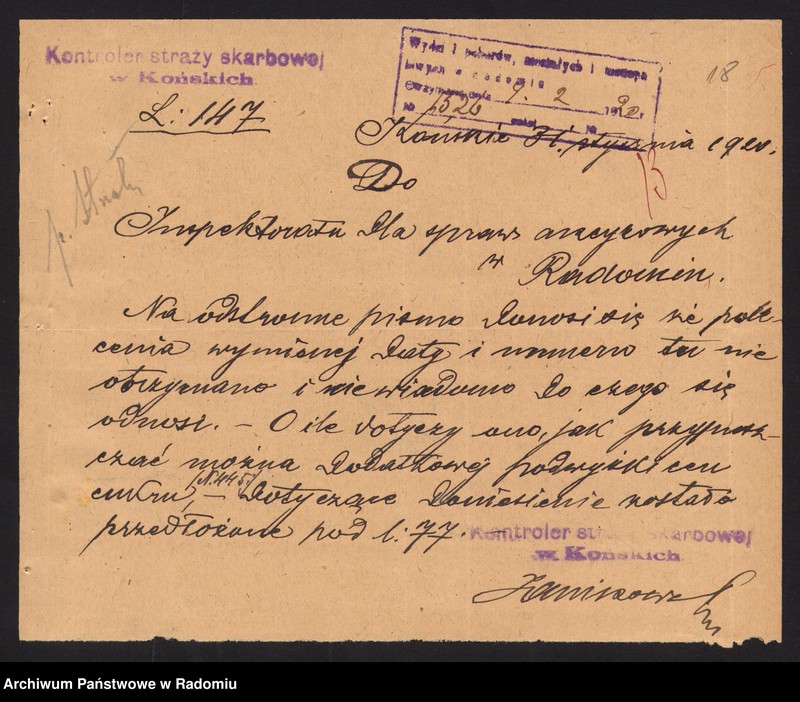 Kontroler straży skarbowej
w Końskich.
L: 147
18
Otrzymano dnia 9. 2 1920 r
№ 1526
Końskie 31. stycznia 1920.
Do
Inspektoratu dla spraw akcyzowych
w Radomiu.
Na odstronne pismo donosi się że pole-
cenia wymienej daty i numeru tu nie
otrzymano i niewiadomo do czego się
odnosi. – O ile dotyczy ono, jak przypusz-
czać można dodatkowej podwyżki cen
cukru, – dotyczące doniesienie zostało
przedłożone pod l: 77. –
Kontroler straży skarbowej
w Końskich.
Archiwum Państwowe w Radomiu